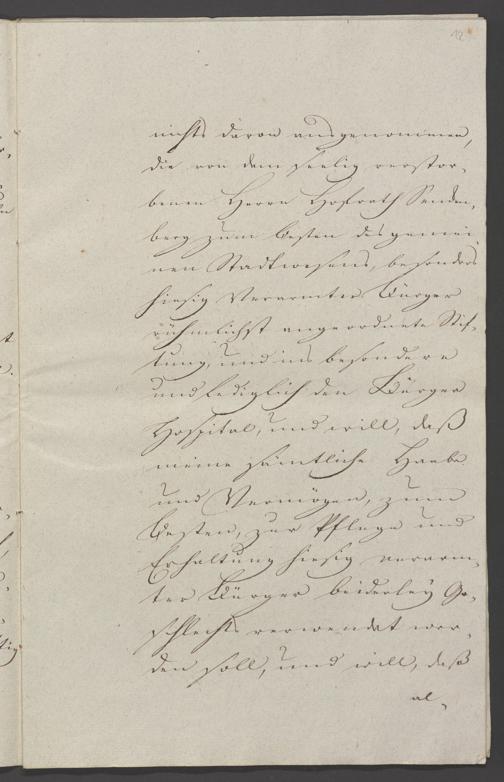 12
nichts davon ausgenommen,
die von dem seelig verstor-
benen Herrn Hofrath Senden-
berg zum besten des gemei-
nen Stadtwesens, besonders
hiesig Verarmter Bürger
rühmlichst angeordnete Stif-
tung, und ins besondere
und lediglich den Bürger
Hospital, und will, daß
meine sämtliche Haabe
und Vermögen, zum
besten, zur Pflege und
Erhaltung hiesig verarm-
ter Bürger beiderley Ge-
schlechts verwendet wer-
den soll, und will, daß
al-